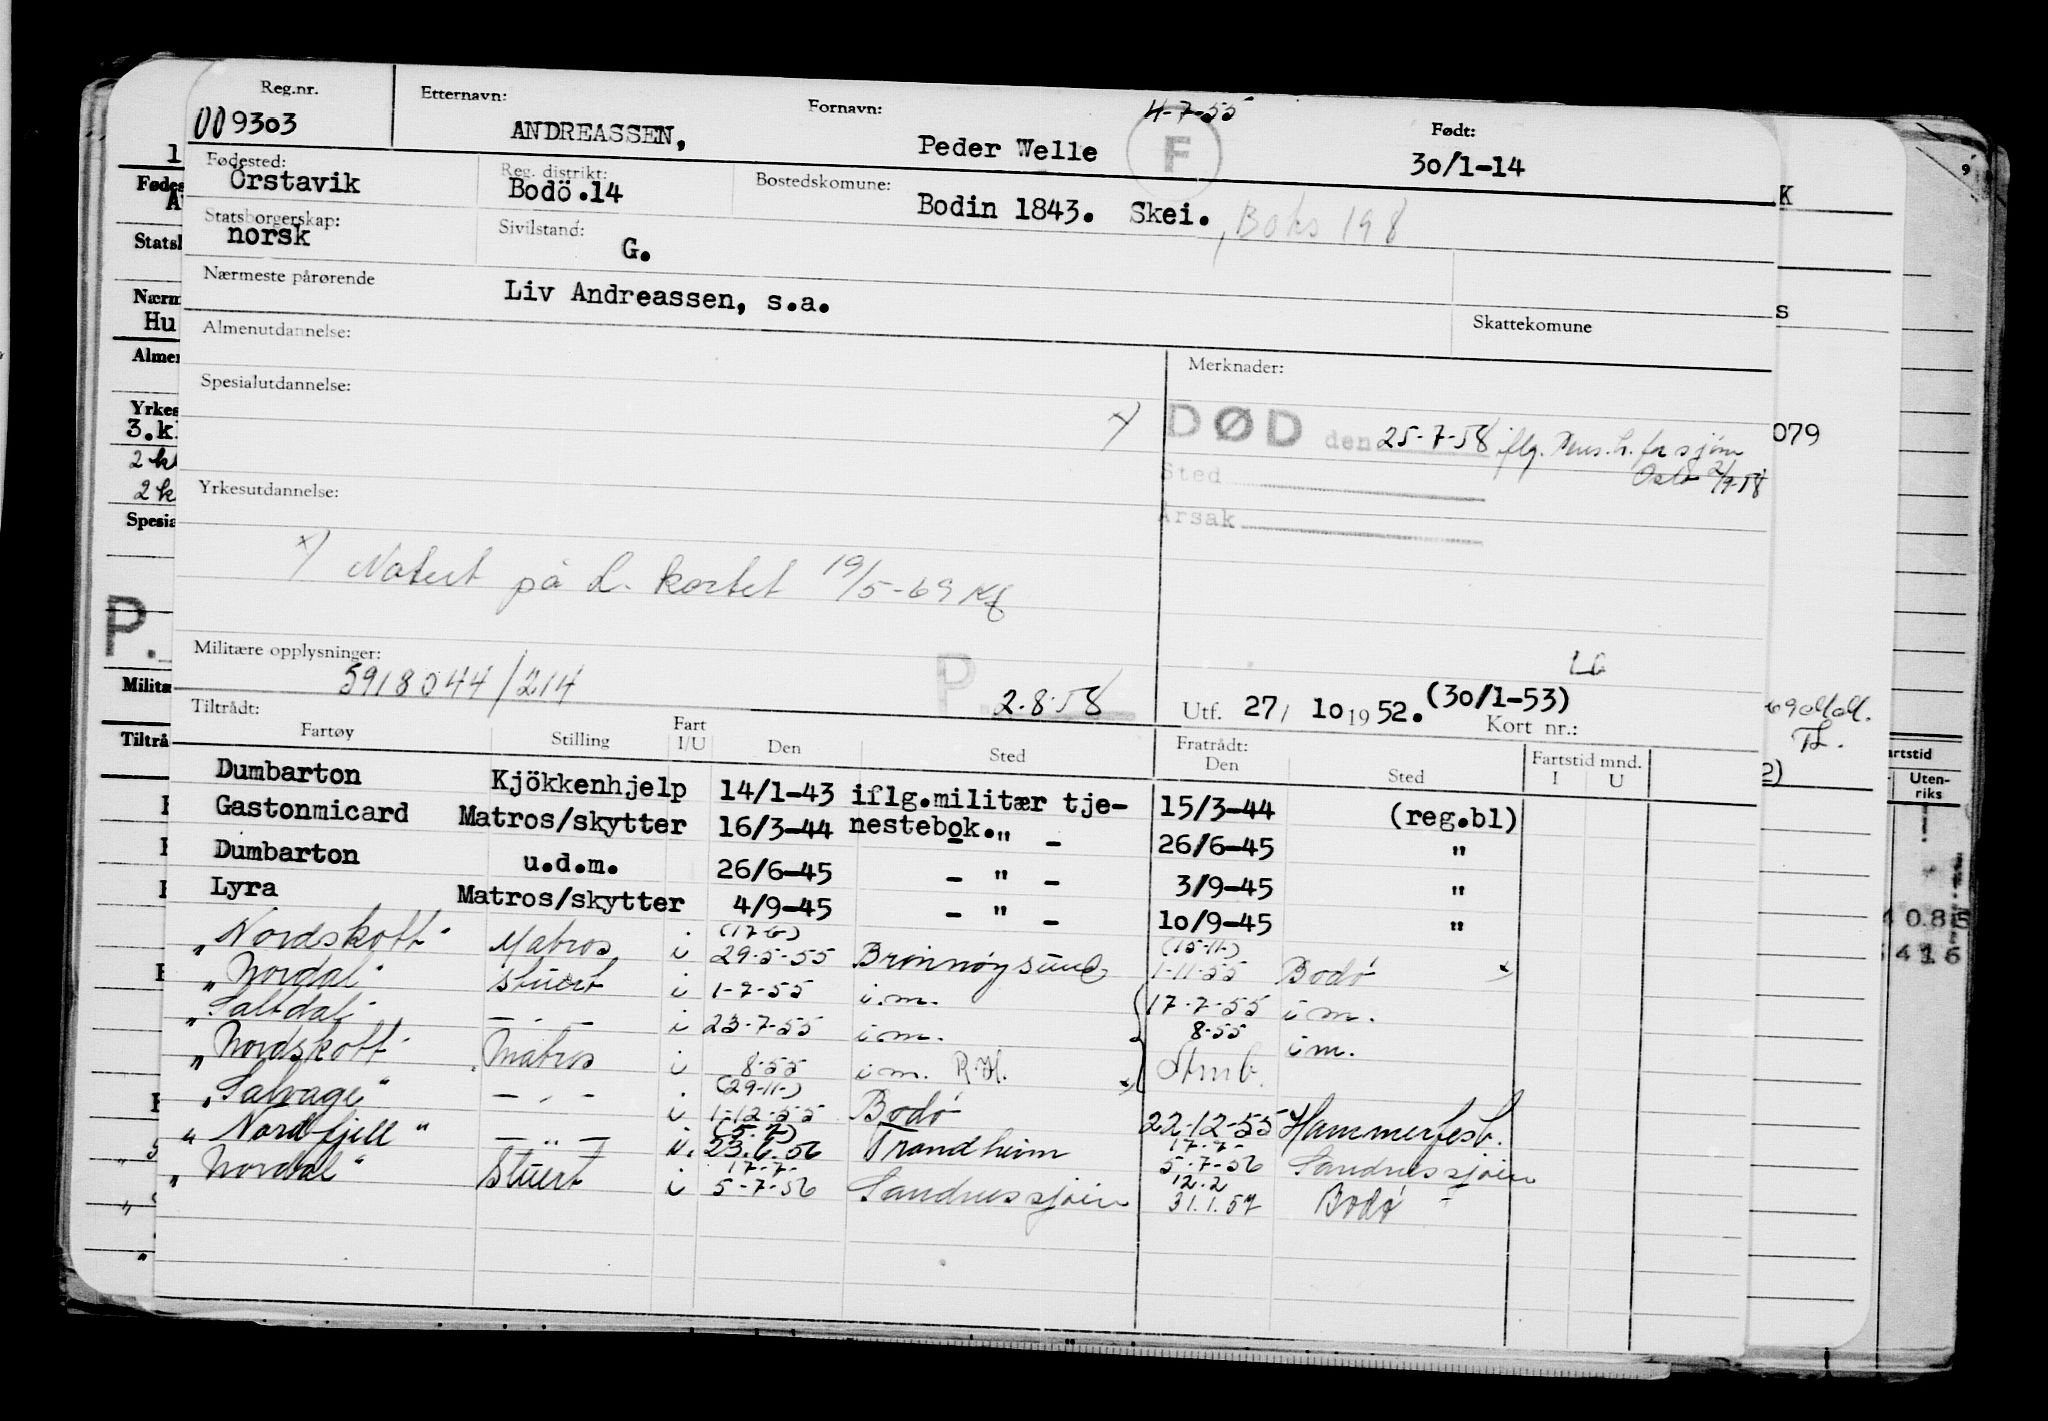 Reg.nr. Etternavn: Fornavn: 4-7-55 Født:
009303 ANDREASSEN, Peder Welle F 30/1-14
Fødested: Reg. distrikt: Bostedskomune:
Örstavik Bodö.14 Bodin 1843. Skei. , Boks 198
Statsborgerskap: Sivilstand:
norsk G.
Nærmeste pårørende Liv Andreassen, s.a.
Almenutdannelse: Skattekomune
Spesialutdannelse: Merknader:
x) DØD den 25-7-58 iflg. Pens. tr. for sjøm
Sted Oslo 2/9-58
Yrkesutdannelse: Årsak
x) Notert på L. kortet 19/5-69
Militære opplysninger:
5918044/214 P. 2.8.58 Utf. 27/ 10 1952. (30/1-53)
Kort nr.:
Tiltrådt: Fratrådt:
Fartøy Stilling Fart I/U Den Sted Den Sted Fartstid mnd. I U
Dumbarton Kjökkenhjelp 14/1-43 iflg.militær tje- 15/3-44 (reg.bl)
Gastonmicard Matros/skytter 16/3-44 nestebok. " - 26/6-45 "
Dumbarton u.d.m. 26/6-45 - " - 3/9-45 "
Lyra Matros/skytter 4/9-45 - " - 10/9-45 "
(17-6) (15-11-)
"Nordskott" Matros i 29-5-55 Brønnøysund 1-11-55 Bodø x
"Nordal" stuert i 1-7-55 i.m. 17-7-55 i m.
"Saltdal" - " - i 23-7-55 i m. 8-55 i m.
"Nordskott" Matros i 8-55 i m. P.H. x
(29-11-)
"Salvage" - " - i 1-12-55 Bodø 22-12-55 Hammerfest.
(5.7) 17-7-
"Nordfjell" - " - i. 23.6.56 Trondheim 5-7-56 Sandnessjøen
17-7- 12.2
"Nordal" Stuert i 5-7-56 Sandnessjøen 31.1.57 Bodø
K
s
079
Hu
3.k
2 k
2 k
P.
Uten-
riks